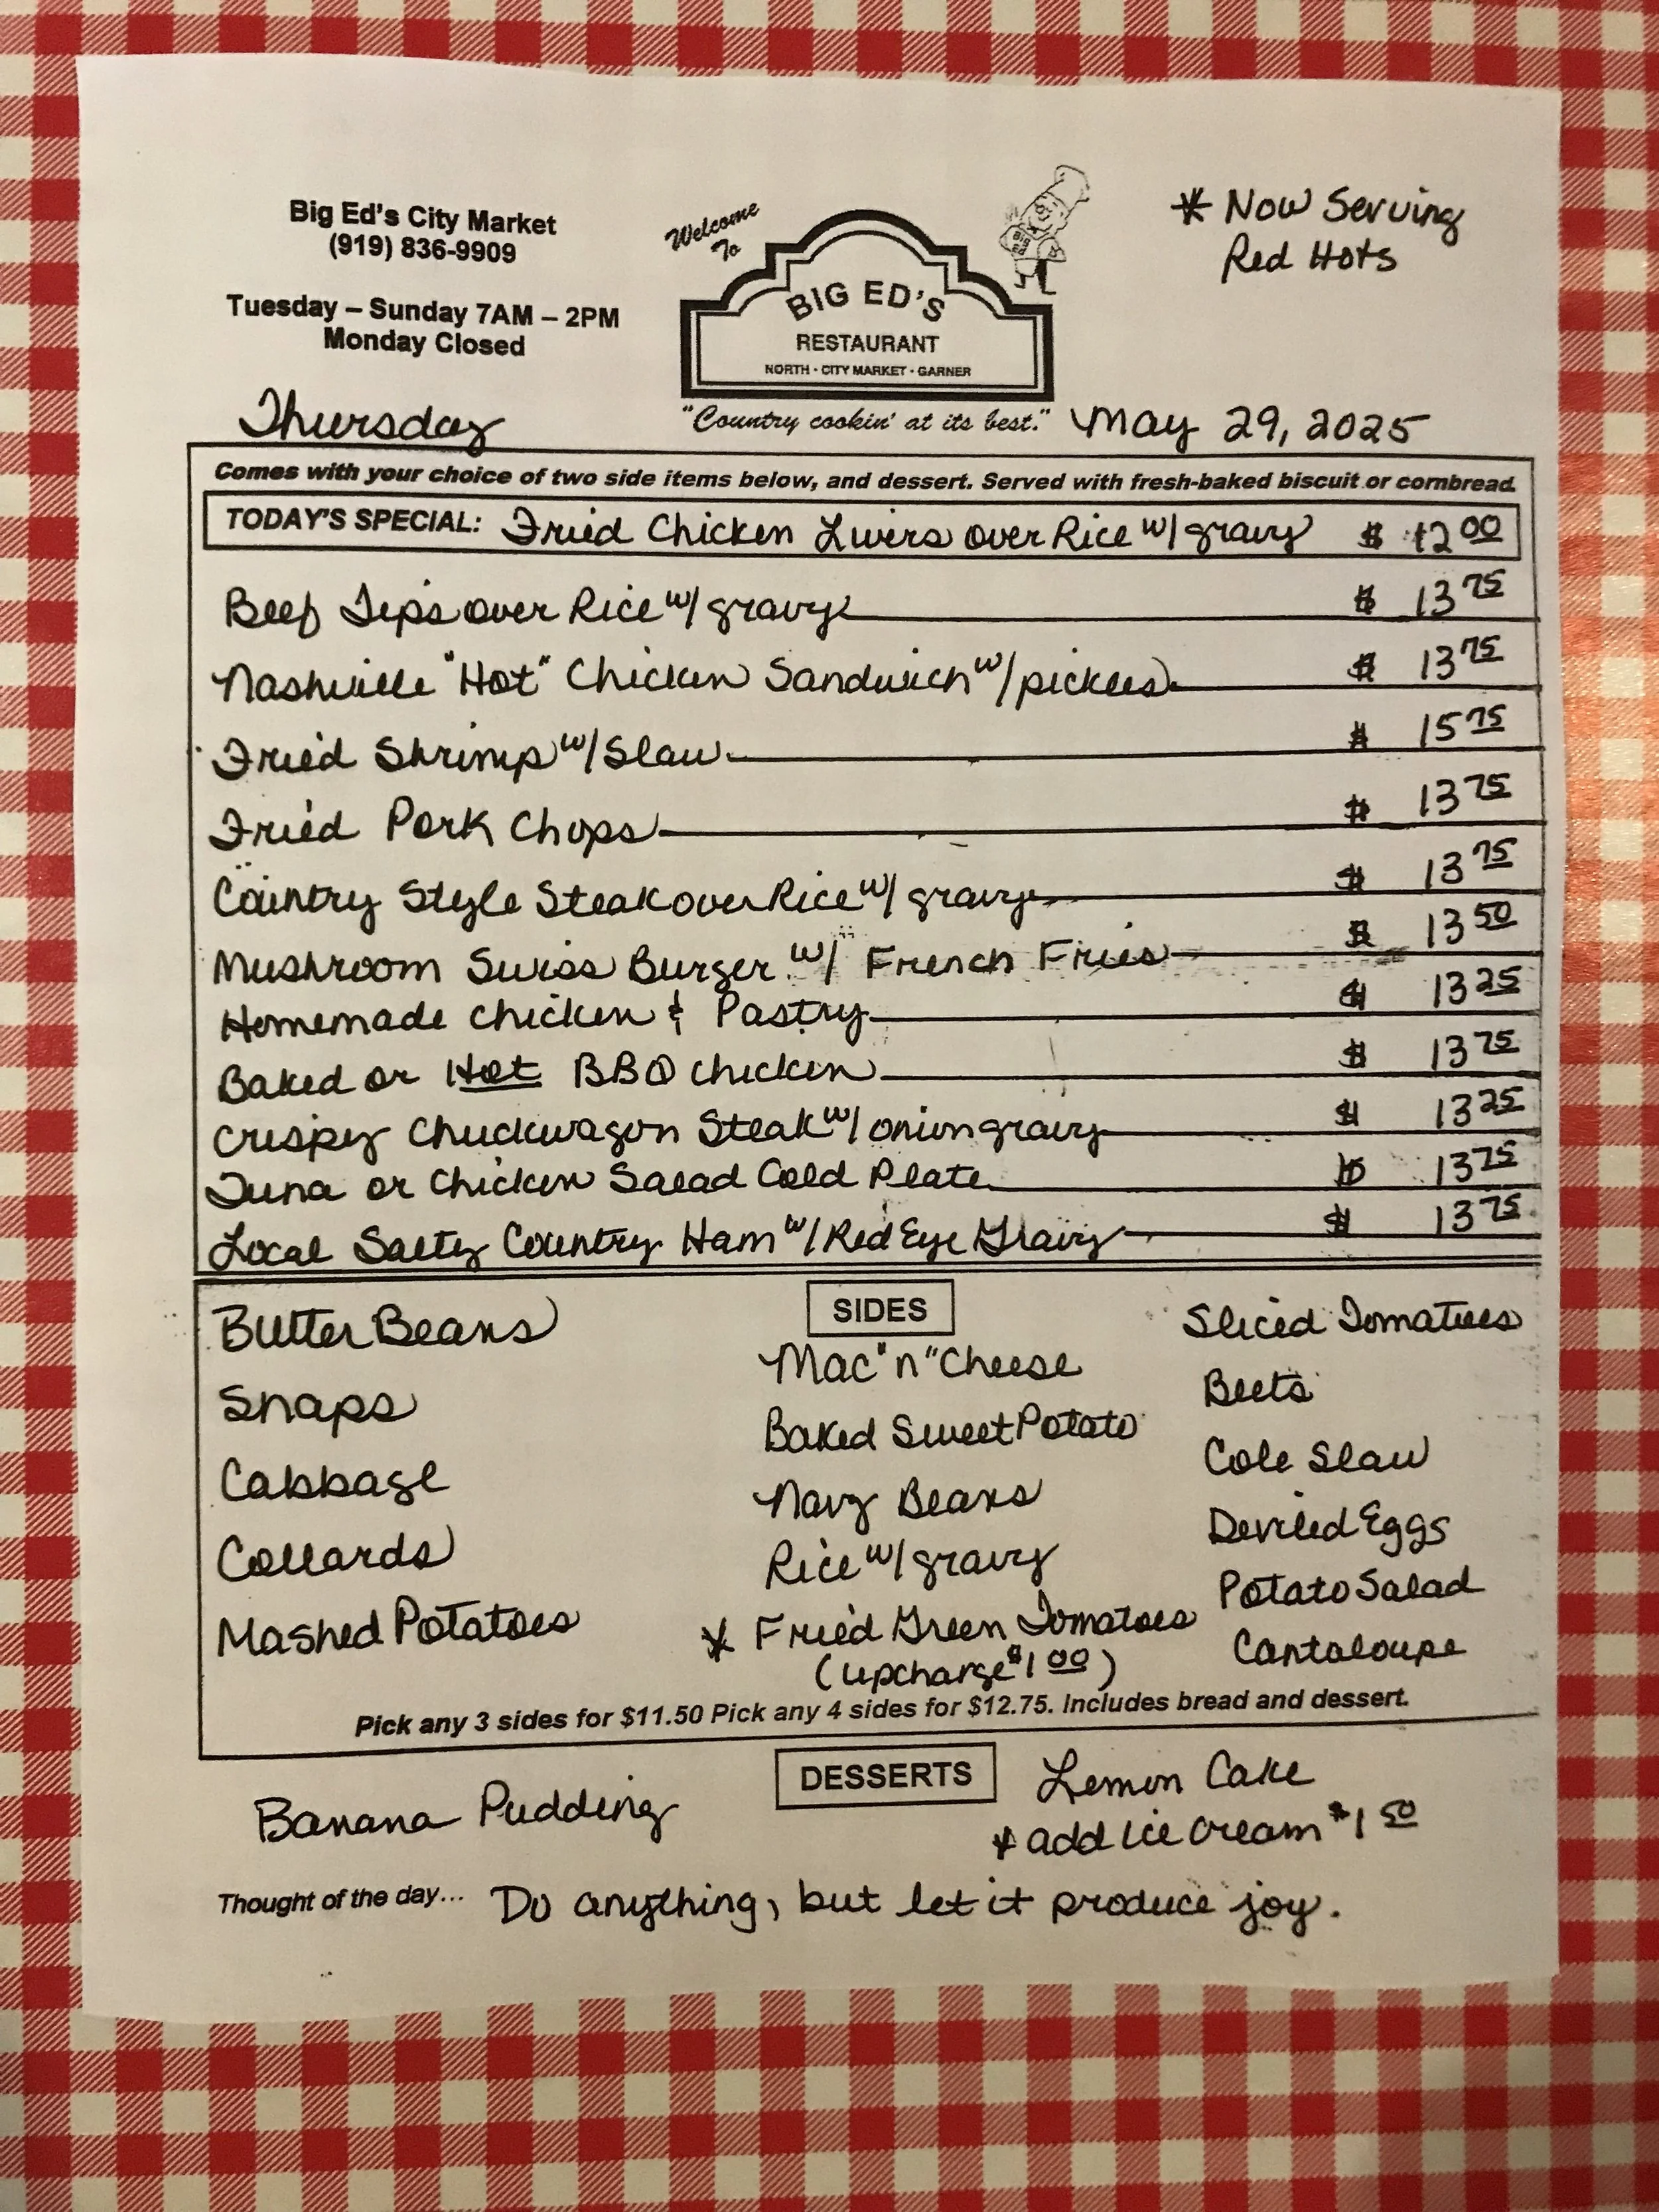 Big Ed's City Market
(919) 836-9909
Tuesday – Sunday 7AM – 2PM
Monday Closed
Welcome
To
BIG ED'S
RESTAURANT
NORTH · CITY MARKET · GARNER
"Country cookin' at its best."
* Now Serving
Red Hots
Thursday
May 29, 2025
Comes with your choice of two side items below, and dessert. Served with fresh-baked biscuit or cornbread.
TODAY'S SPECIAL: Fried Chicken Livers over Rice w/ gravy $ 12 00
Beef Tips over Rice w/ gravy $ 13 75
Nashville "Hot" Chicken Sandwich w/ pickles $ 13 75
Fried Shrimp w/ Slaw $ 15 75
Fried Pork Chops $ 13 75
Country Style Steak over Rice w/ gravy $ 13 75
Mushroom Swiss Burger w/ French Fries $ 13 50
Homemade Chicken & Pastry $ 13 25
Baked or Hot BBQ Chicken $ 13 75
Crispy Chuckwagon Steak w/ onion gravy $ 13 25
Tuna or Chicken Salad Cold Plate $ 13 75
Local Salty Country Ham w/ Red Eye Gravy $ 13 75
SIDES
Butter Beans
Snaps
Cabbage
Collards
Mashed Potatoes
Mac "n" Cheese
Baked Sweet Potato
Navy Beans
Rice w/ gravy
* Fried Green Tomatoes
(upcharge $1 00)
Sliced Tomatoes
Beets
Cole Slaw
Deviled Eggs
Potato Salad
Cantaloupe
Pick any 3 sides for $11.50 Pick any 4 sides for $12.75. Includes bread and dessert.
DESSERTS
Banana Pudding
Lemon Cake
* add ice cream $1 50
Thought of the day... Do anything, but let it produce joy.